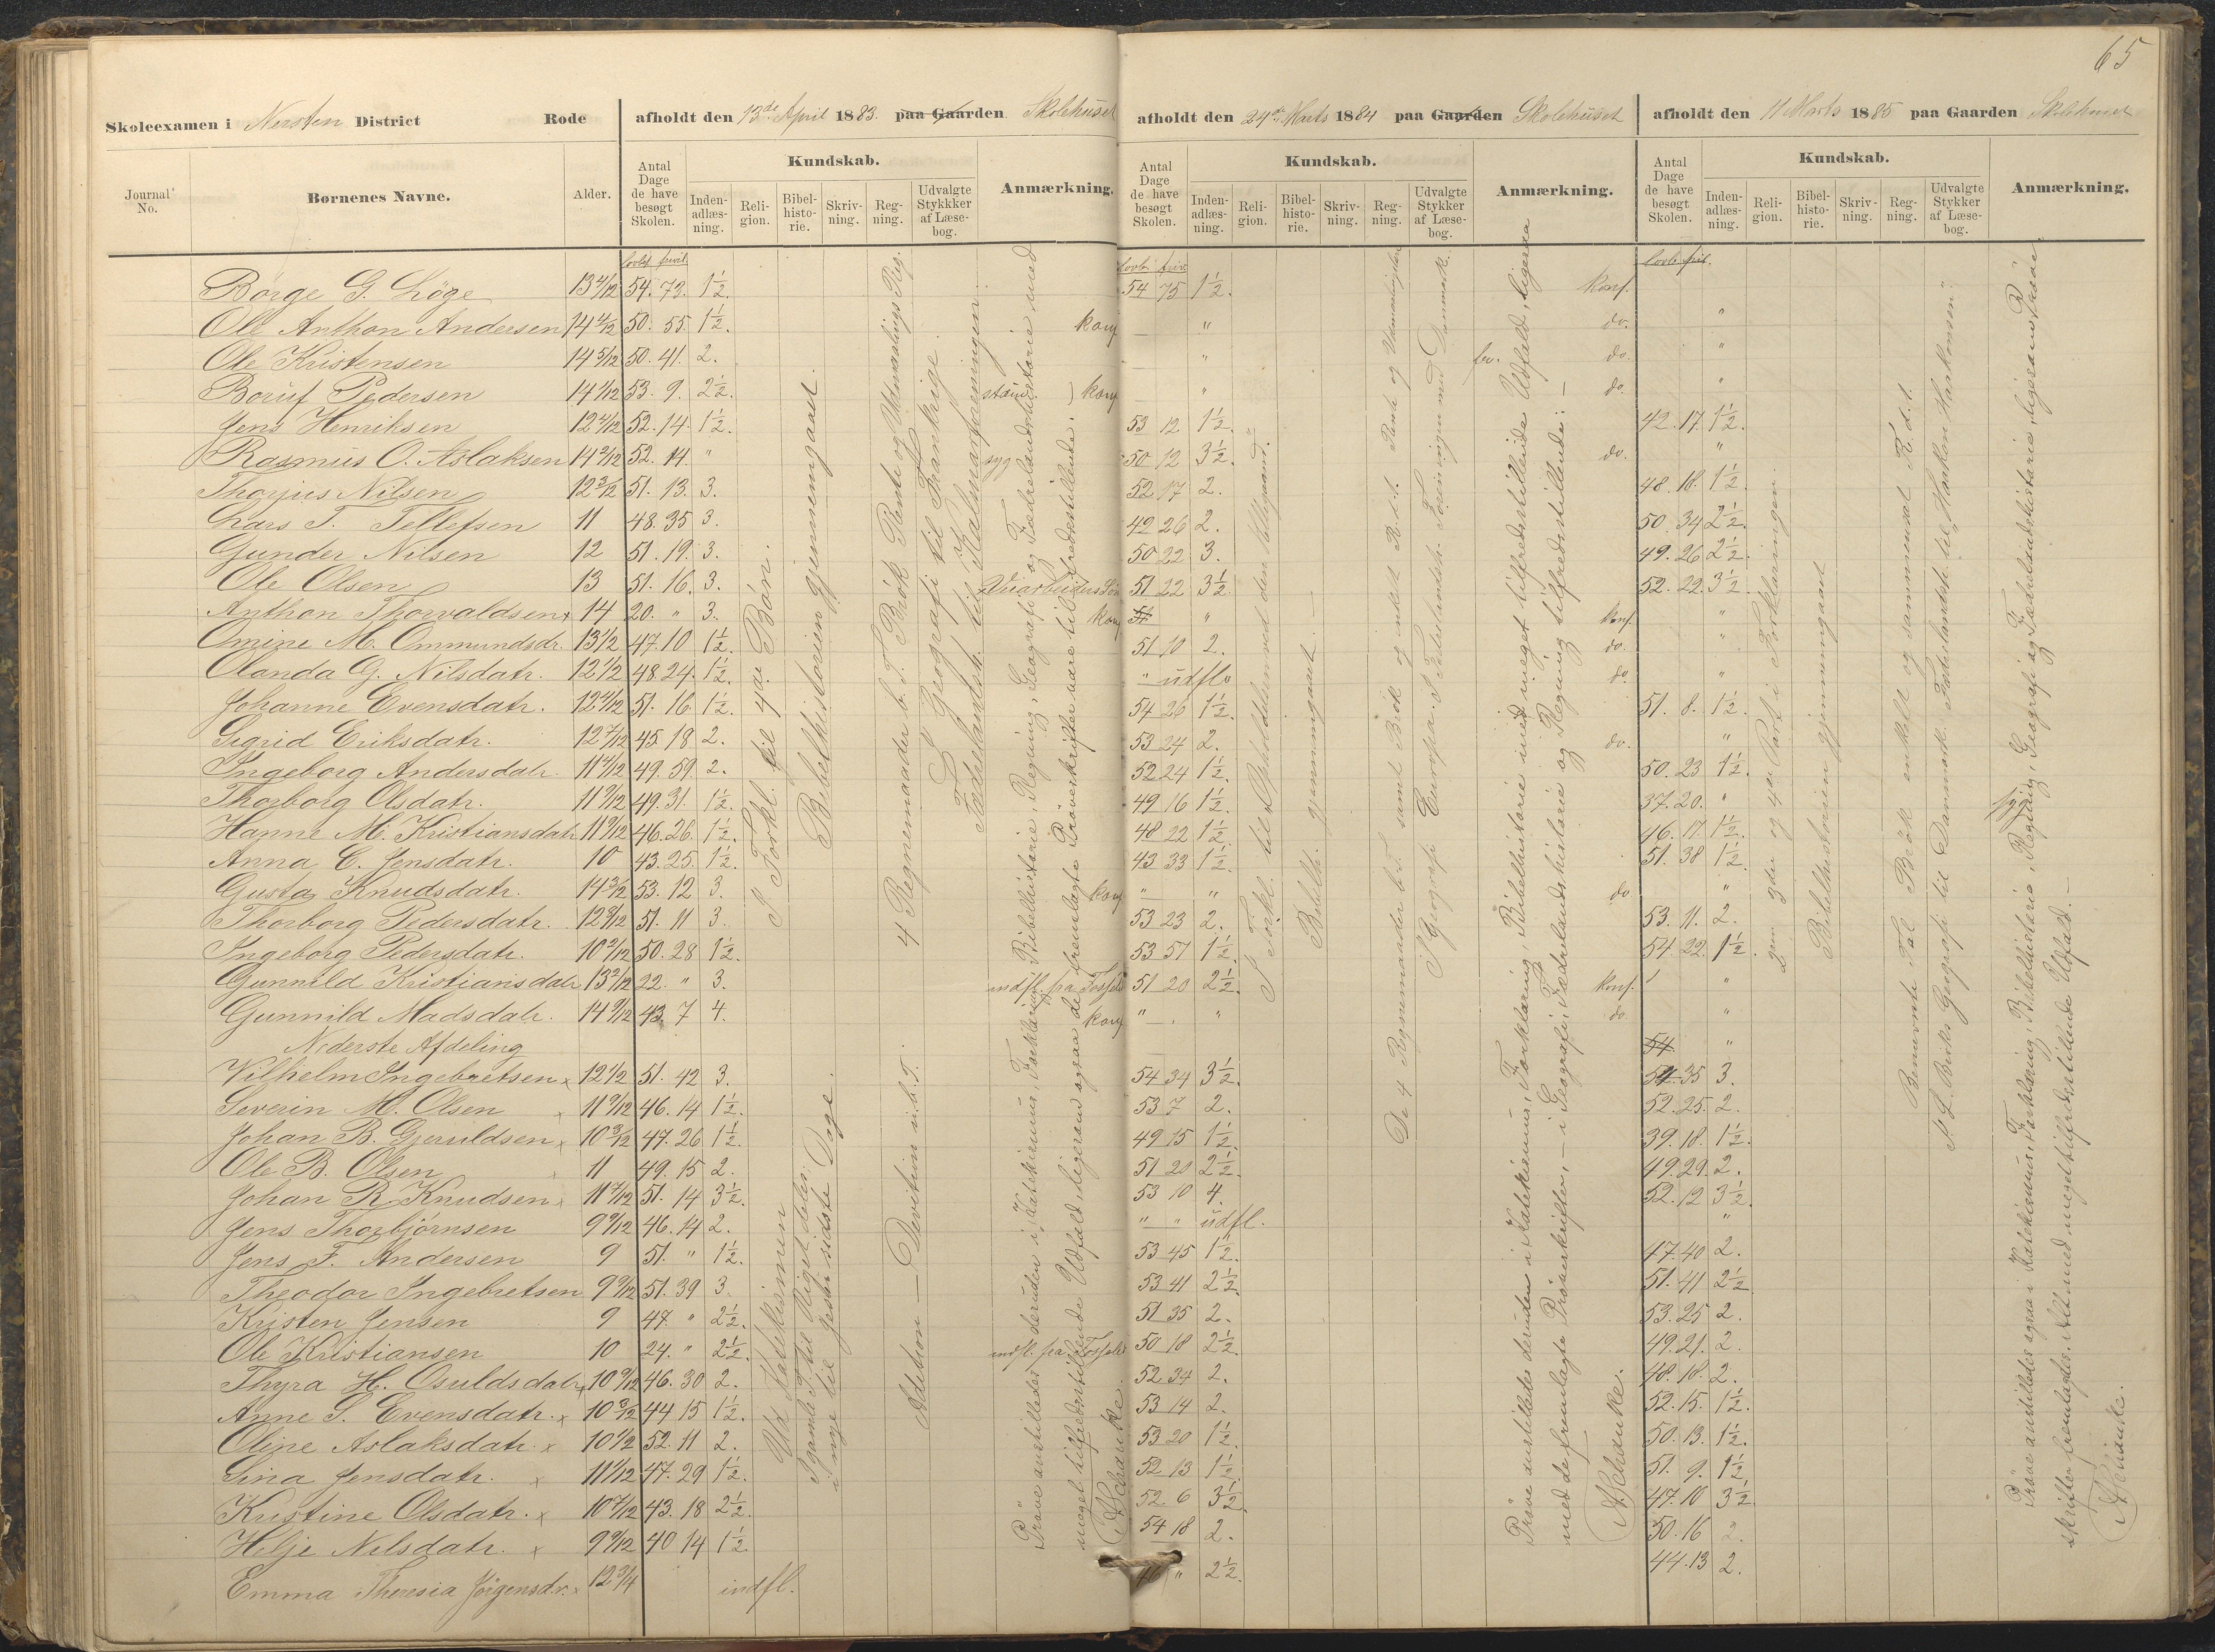 65
Skoleexamen i Nersten District Rode afholdt den 13de April 1883. paa Gaarden Skolehuset afholdt den 24de Marts 1884 paa Gaarden Skolehuset afholdt den 11 Marts 1885 paa Gaarden Skolehuset
Journal No. Børnenes Navne. Alder. Antal Dage de have besøgt Skolen. Kundskab. Indenadlæsning. Religion. Bibelhistorie. Skrivning. Regning. Udvalgte Stykkker af Læsebog. Anmærkning.
Antal Dage de have besøgt Skolen. Kundskab. Indenadlæsning. Religion. Bibelhistorie. Skrivning. Regning. Udvalgte Stykker af Læsebog. Anmærkning.
Antal Dage de have besøgt Skolen. Kundskab. Indenadlæsning. Religion. Bibelhistorie. Skrivning. Regning. Udvalgte Stykker af Læsebog. Anmærkning.
Børge G. Løge 13 4/12 54. 73. 1½. 54 75 1½. konf.
Ole Anthon Andersen 14 4/12 50. 55. 1½. konf " do. "
Ole Kristensen 14 5/12 50. 41. 2. " do. "
Boruf Pedersen 14 1/12 53. 9. 2½. konf " do. "
Jens Henriksen 12 4/12 52. 14. 1½. 53 12 1½. 42. 17. 1½.
Rasmus O. Aslaksen 14 2/12 52. 14. " syg 50 12 3½. do. "
Thorjus Nilsen 12 3/12 51. 13. 3. 52 17 2. 48. 18. 1½.
Lars T. Tellefsen 11 48. 35 3. 49 26 2. 50. 34 2½.
Gunder Nilsen 12 51. 19. 3. 50 22 3. 49. 26 2½.
Ole Olsen 13 51. 16. 3. 51 22 3½ 52. 22. 3½.
Anthon Thorvaldsen 14 20. " 3. konf " konf. "
Omine M. Ommundsdr. 13 1/2 47. 10 1½. 51 10 2. do. "
Olanda G. Nilsdatr. 12 1/2 48. 24. 1½. " udfl. do. "
Johanne Evensdatr. 12 4/12 51. 16. 1½. 54 26 1½. 51. 8. 1½.
Sigrid Eriksdatr. 12 7/12 45 18 2. 53 24 2. do. "
Ingeborg Andersdatr. 11 4/12 49. 59. 2. 52 24 1½. 50. 23 1½.
Thorborg Olsdatr. 11 9/12 49. 31. 1½. 49 16 1½. 37. 20. " syg
Hanne M. Kristiansdatr 11 9/12 46. 26. 1½. 48 22 1½. 46. 17. 1½.
Anna C. Jensdatr. 10 43. 25. 1½. 43 33 1½. 51. 38 1½.
Gusta Knudsdatr. 14 3/12 53. 12 3. konf " " do "
Thorborg Pedersdatr. 12 9/12 51. 11 3. 53 23 2. 53. 11. 2.
Ingeborg Pedersdatr. 10 2/12 50. 28 1½. 53 57 1½ 54. 22. 1½.
Gunnild Kristiansdatr 13 2/12 22. " 3. indfl. fra 51 20 2½. konf. "
Gunnild Madsdatr. 14 9/12 43. 7 4. konf " " do "
Nederste Afdeling 54 "
Vilhelm Ingebretsen x 12 1/2 51. 42 3. 54 34 3½. 54 35 3.
Severin M. Olsen x 11 9/12 46. 14 1½. 53 7 2. 52. 25. 2.
Johan B. Gjeruldsen x 10 3/12 47. 26 1½. 49 15 1½. 39. 18. 1½.
Ole B. Olsen x 11 49. 15 2. 51 20 2½. 49. 29. 2.
Johan R. Knudsen x 11 7/12 51. 14 3½. 53 10 4. 52. 12 3½.
Jens Thorbjørnsen 9 9/12 46. 14 2. " " udfl. "
Jens F. Andersen 9 51. " 1½. 53 45 1½. 47. 40 2.
Theodor Ingebretsen 9 9/12 51. 39 3. 53 41 2½ 51. 41 2½
Kristen Jensen 9 47. " 2½. 51 35 2. 53. 25 2.
Ole Kristiansen 10 24. " 2½. indfl. fra 50 18 2½. 49. 21. 2.
Thyra H. Osuldsdatr x 10 9/12 46. 30 2. 52 34 2. 48. 18. 2.
Anne S. Evensdatr. x 10 3/12 44 15 1½. 53 14 2. 52. 15. 1½.
Oline Aslaksdatr. x 10 1/2 52. 11 2. 53 20 1½. 50. 13. 1½.
Lina Jensdatr. x 11 1/12 47. 29 1½. 52 13 1½. 51. 9. 1½.
Kristine Olsdatr. x 10 7/12 43. 18 2½. 52. 6 3½. 47. 10 3½.
Helje Nilsdatr. x 9 9/12 40 14 1½. 54 18 2. 50. 16 2.
Emma Theresia Jørgensdr. x 12 3/4 indfl. 46 " 2½. 44. 13 2.
I Forkl. til 4de Bøn.
Bibelhistorien gjennemgaaet.
4 Regnemaader b. T. Brøk Rente og Udmaalings Reg.
I Geografi til Frankrige.
Fædrelandsh. til Kalmarforeningen.
Ud Kathekismen
I gamle Test. Riget deles.
i nye til Jesu sidste Dage.
Adition — Devition u. b. T.
Prøve anstilledes desuden i Katekismus, Forklaring, Bibelhistorie, Regning, Geografi og Fædrelandshistorie med
meget tilfredsstillende Udfald, ligesom ogsaa de fremlagte Prøveskrifter vare tilfredsstillende.
A Schanke
I Forkl. til Opholdelsen ved den Helligaand.
Bibelh. gjennemgaaet.
De 4 Regnemaader b. T. samt Brøk og enkel R. d. t. Rente og Udmaalingslære
I Geografi Europa. I Fædrelandsh. Foreningen med Danmark.
Prøve anstilledes desuden i Katekismus, Forklaring, Bibelhistorie med meget tilfredsstillende Udfald, ligesaa
med de fremlagte Prøveskrifter, — i Geografi, Fædrelandshistorie og Regning tilfredsstillende. —
A Schanke.
2den 3die og 4de Part i Forklaringen
Bibelhistorien gjennemgaaet
Benævnte Tal Brøk enkelt og sammensat R. d. t.
Geografi til Danmark. Fædrelandsh. til „Haakon Haakonsen."
Prøve anstilledes ogsaa i Katekismus, Forklaring, Bibelhistorie, Regning, Geografi og Fædrelandshistorie, ligesom Prøve-
skrifter fremlagdes. Alt med meget tilfredsstillende Udfald. —
A Schanke.